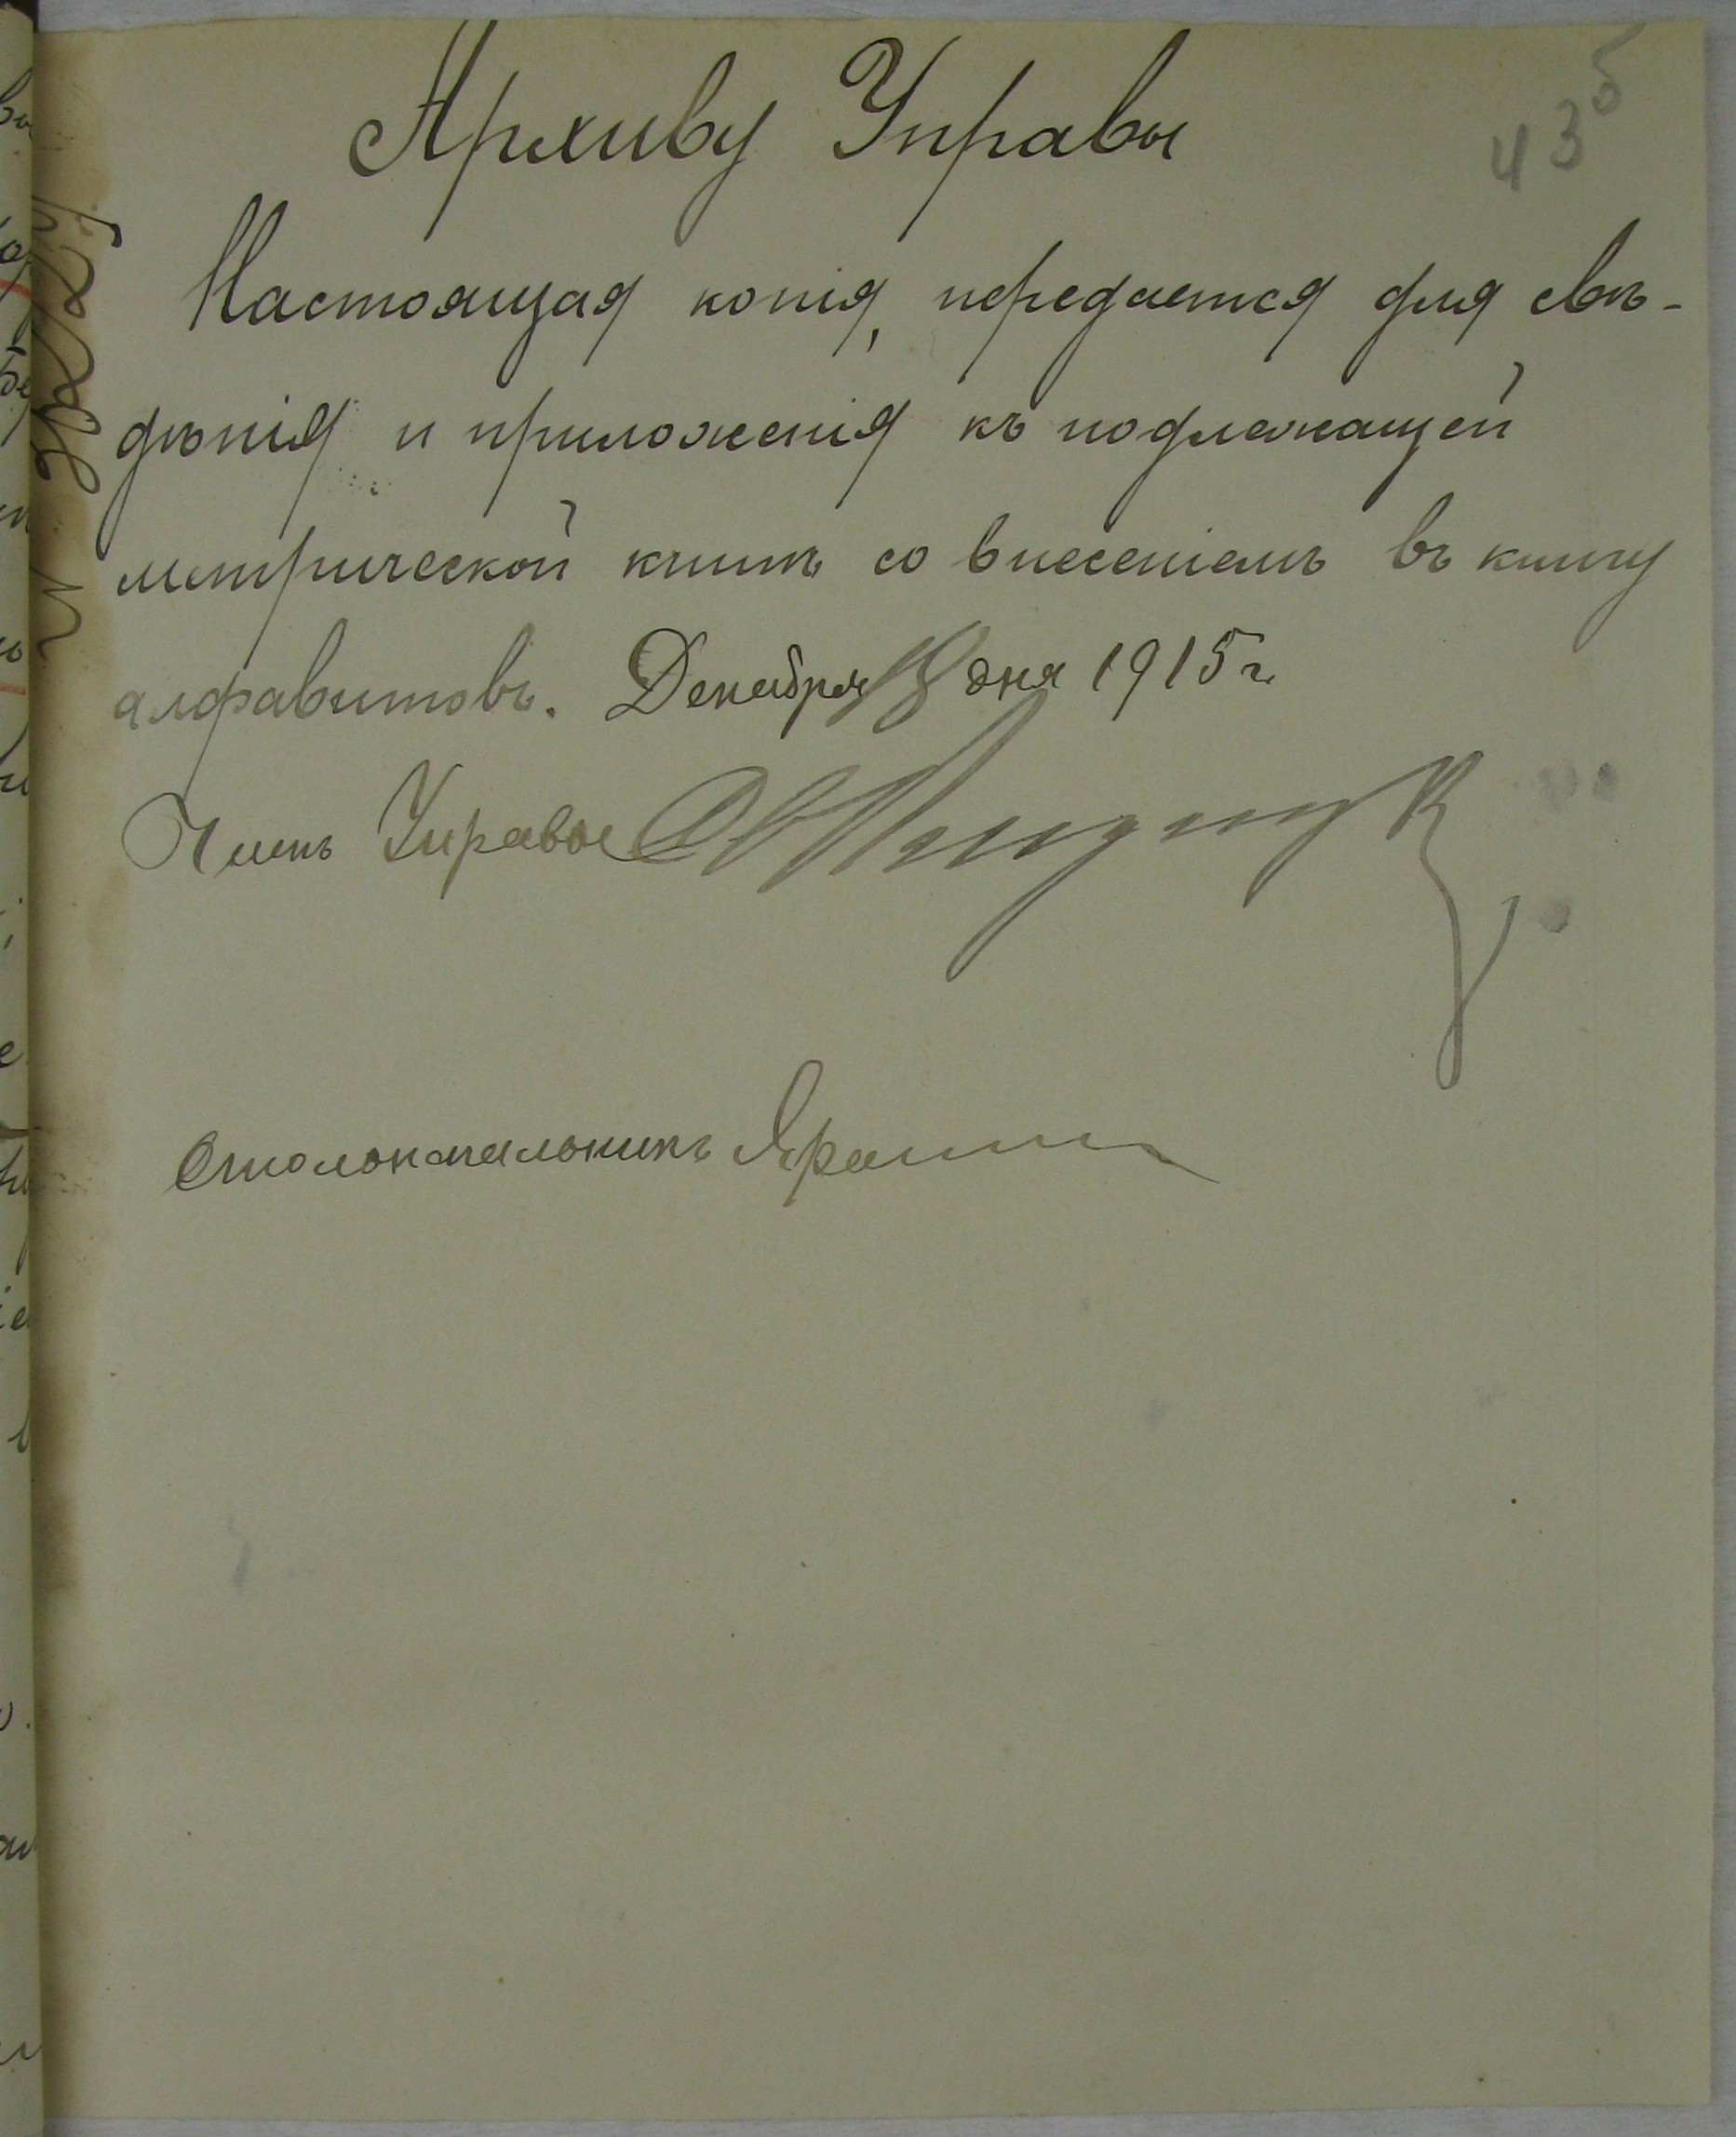 43б
Архиву Управы
Настоящая копія, передается для свѣ-
дѣнія и приложенія къ подлежащей
метрической книгѣ со внесеніемъ въ книгу
алфавитовъ. Декабря дня 1915 г.
Членъ Управы
Столоначальникъ